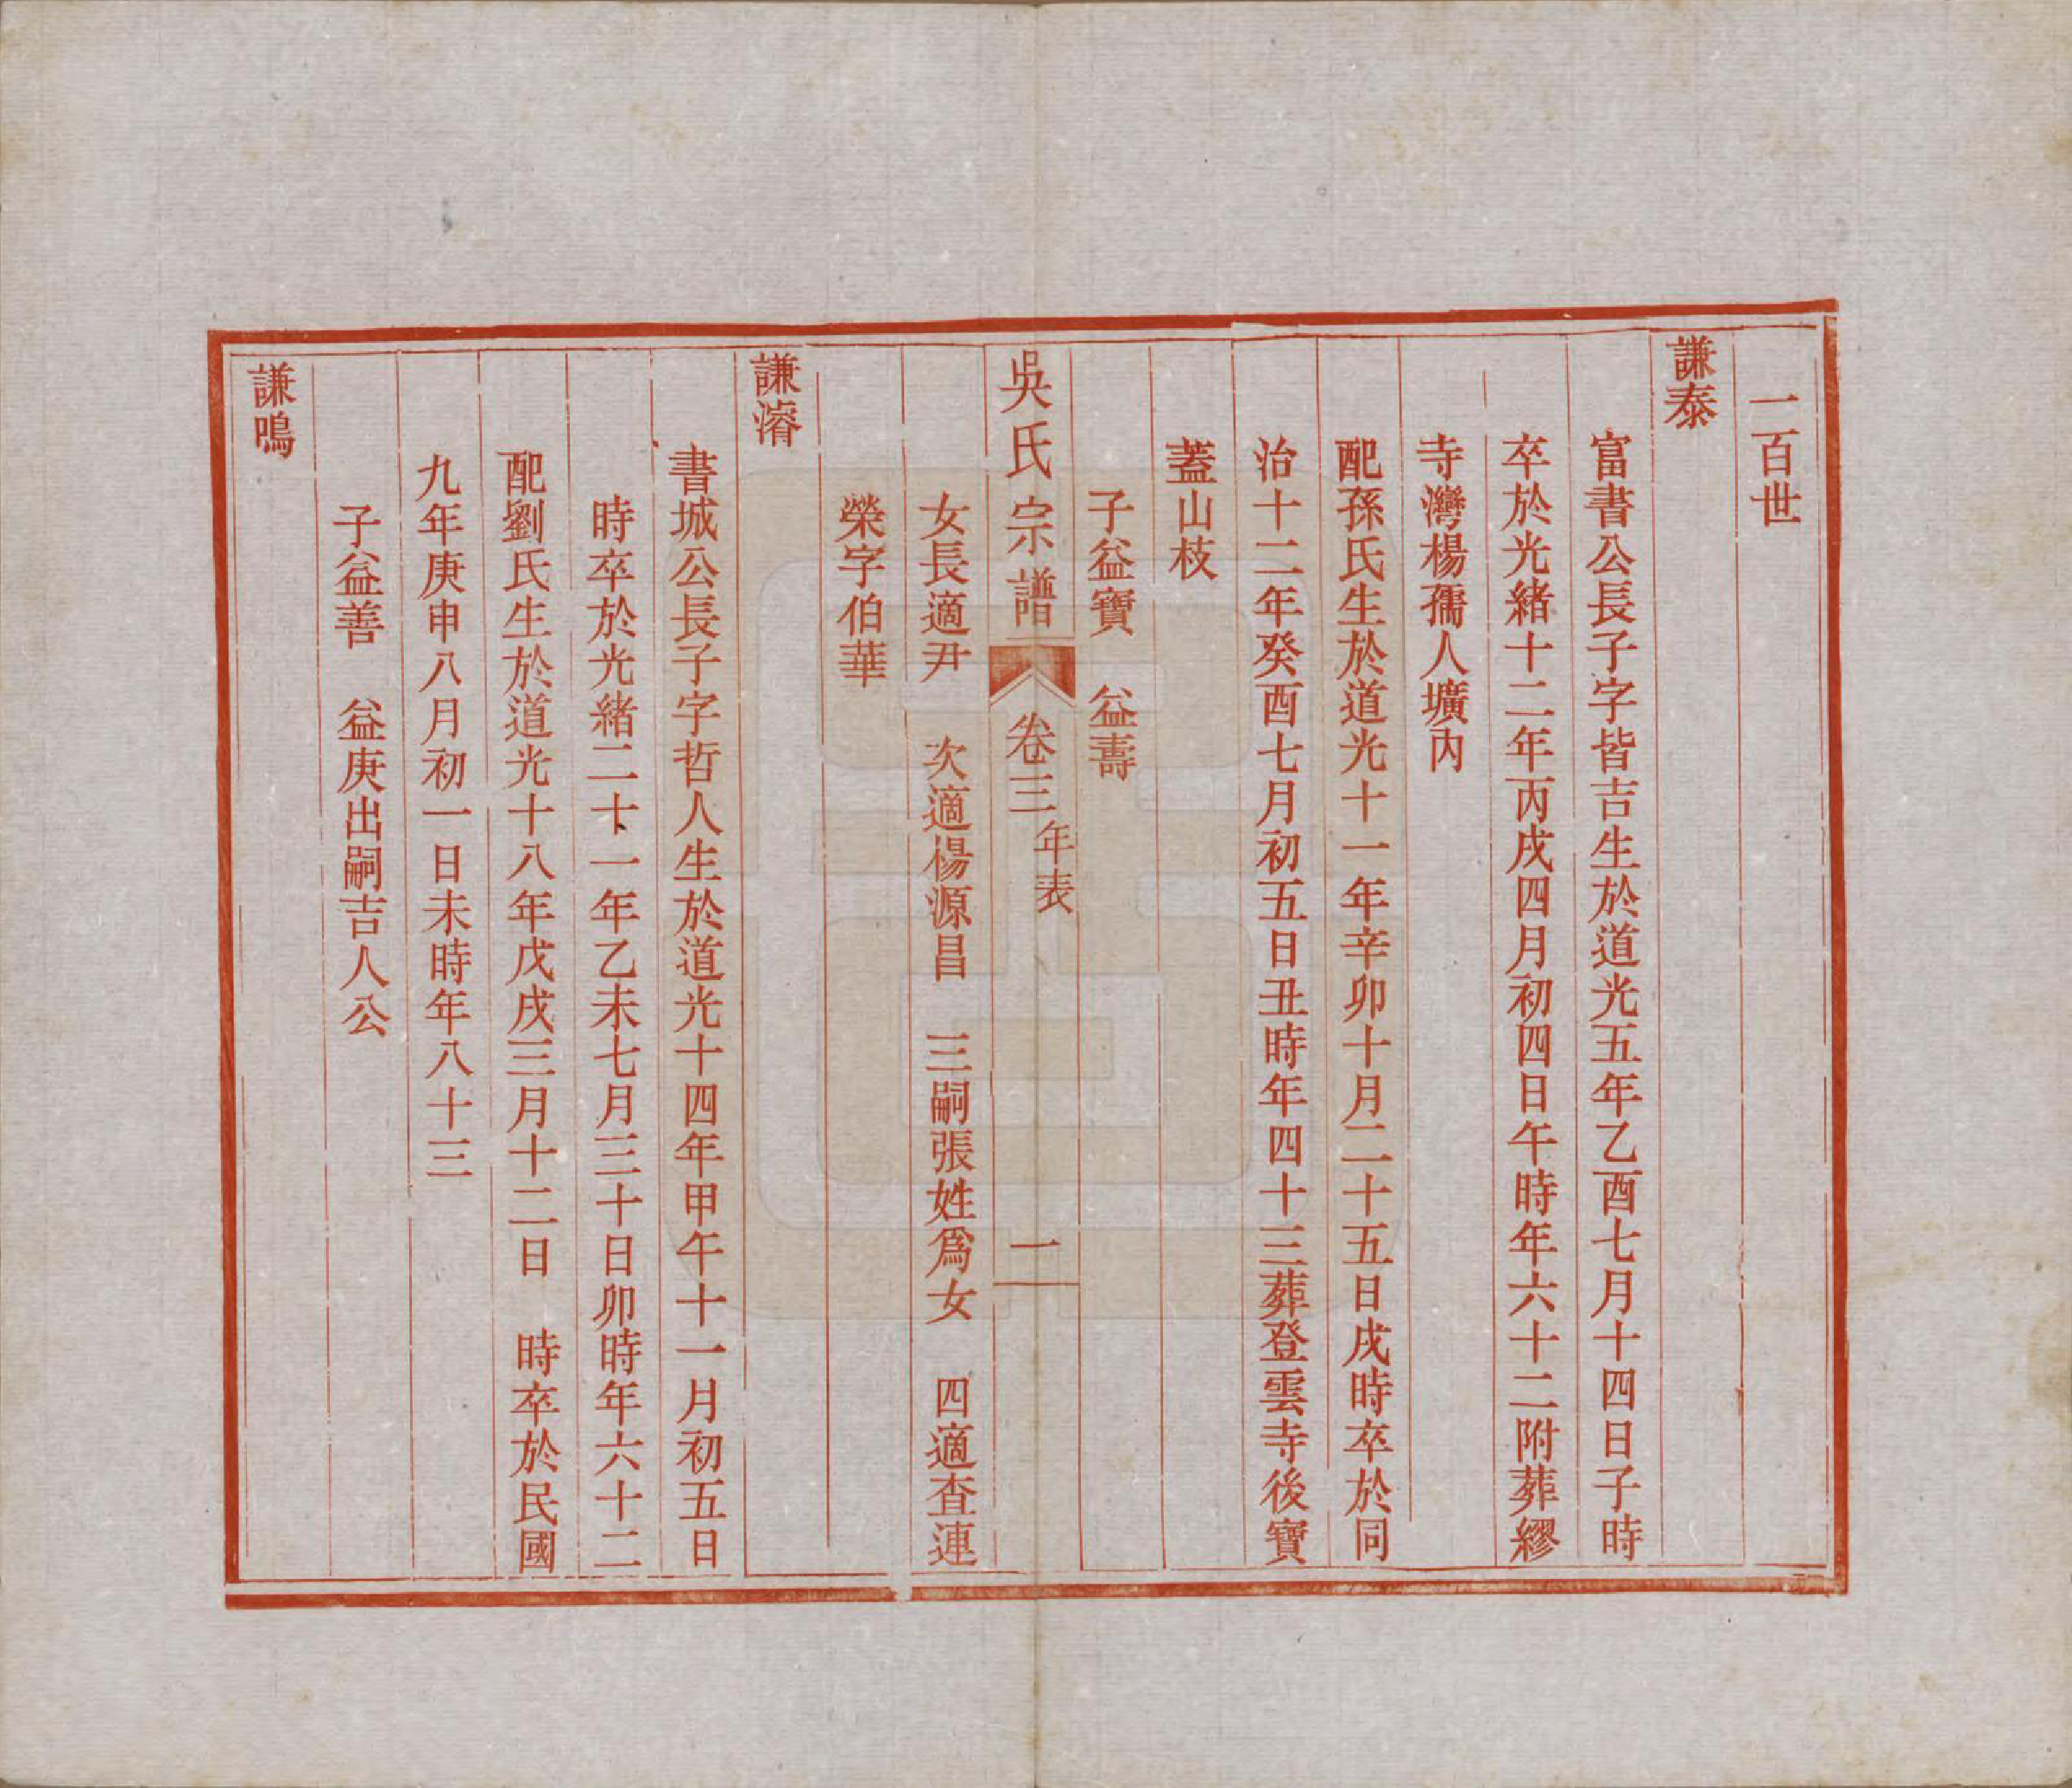 一百世
謙泰
富書公長子字皆吉生於道光五年乙酉七月十四日子時
卒於光緒十二年丙戌四月初四日午時年六十二附葬繆
寺灣楊孺人壙內
配孫氏生於道光十一年辛卯十月二十五日戌時卒於同
治十二年癸酉七月初五日丑時年四十三葬登雲寺後寶
蓋山枝
子益寶　益壽
吳氏宗譜　卷三年表　一
女長適尹　次適楊源昌　三嗣張姓爲女　四適查連
榮字伯華
謙濬
書城公長子字哲人生於道光十四年甲午十一月初五日
時卒於光緒二十一年乙未七月三十日卯時年六十二
配劉氏生於道光十八年戊戌三月十二日　時卒於民國
九年庚申八月初一日未時年八十三
子益善　益庚出嗣吉人公
謙鳴